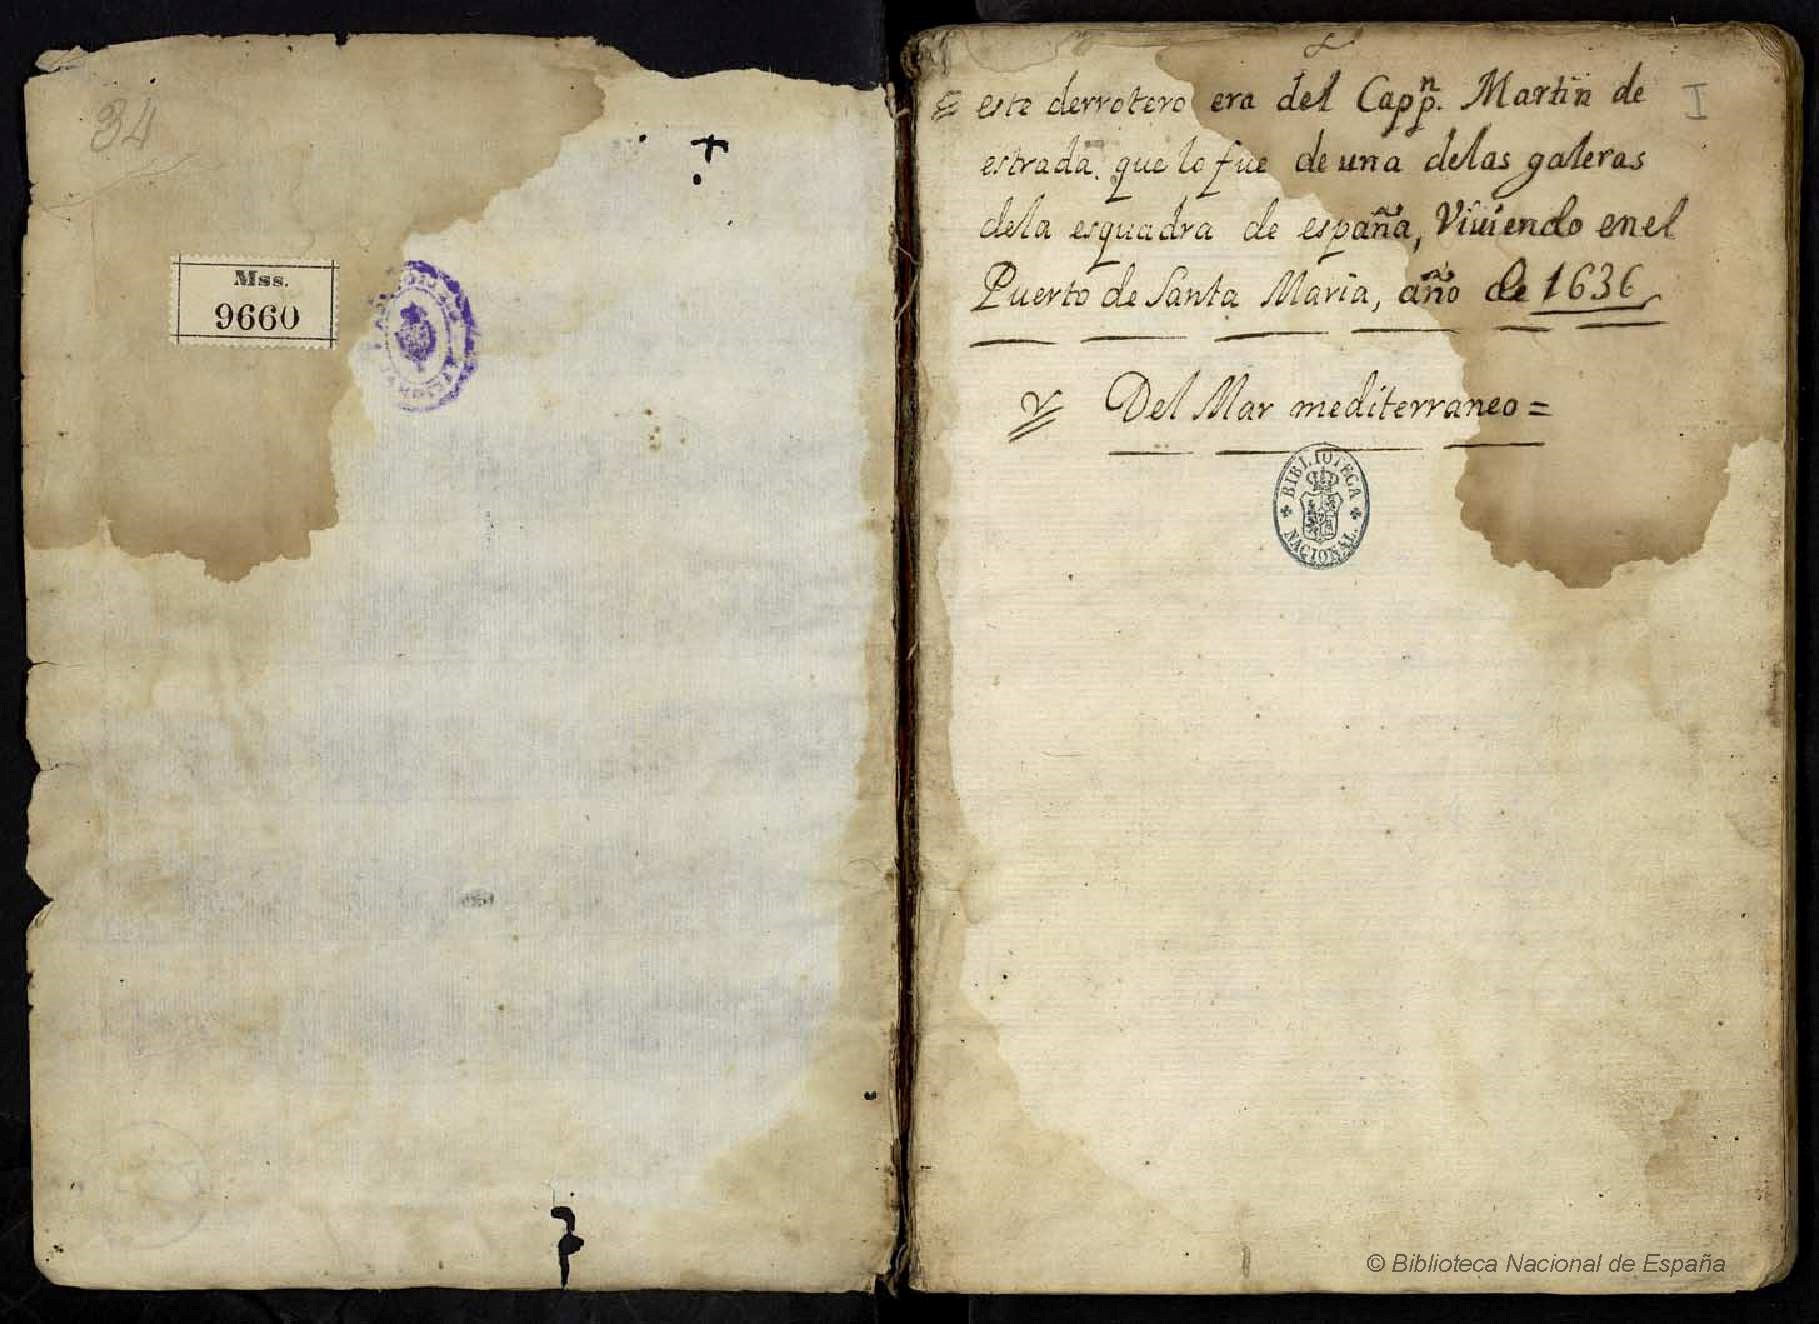 34
Mss.
9660
este derrotero era del Capp.n Martin de
I
estrada. que lo fue de una delas galeras
dela esquadra de españa, Viuiendo enel
Puerto de Santa Maria, año de 1636
Del Mar mediterraneo=
BIBLIOTECA
NACIONAL
© Biblioteca Nacional de España